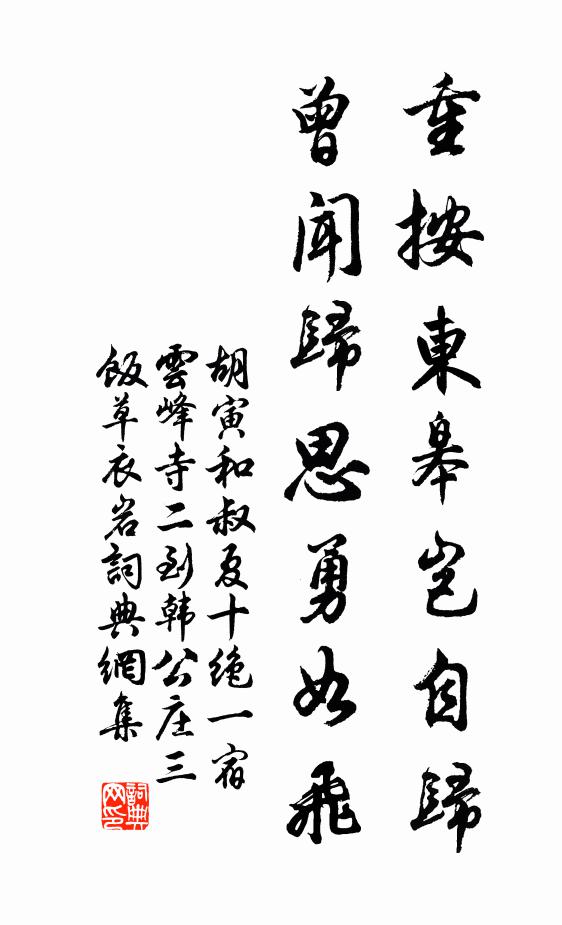 重按東皋岂自歸
曾聞歸思勇如飛
胡寅和叔夏十绝一宿
雲峰寺二到韩公庄三
飯草衣岩詞典網集
詞典网印